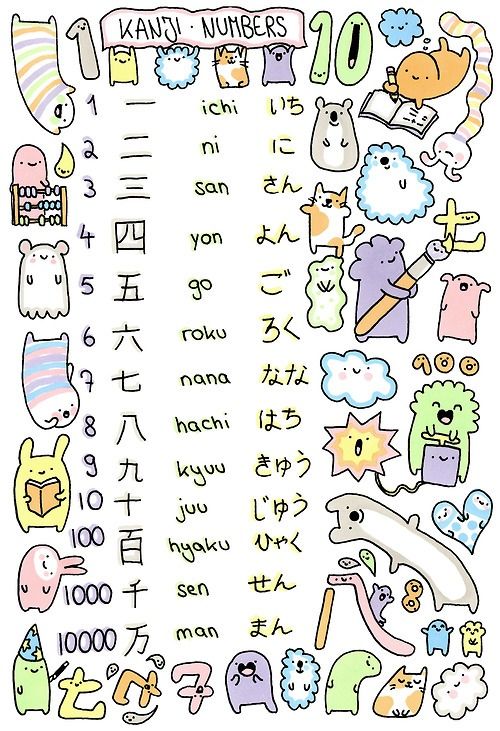 1 KANJI · NUMBERS 10
1 一 ichi いち
2 二 ni に
3 三 san さん
4 四 yon よん
5 五 go ご
6 六 roku ろく
7 七 nana なな
8 八 hachi はち
9 九 kyuu きゅう
10 十 juu じゅう
100 百 hyaku ひゃく
1000 千 sen せん
10000 万 man まん
七
100
8